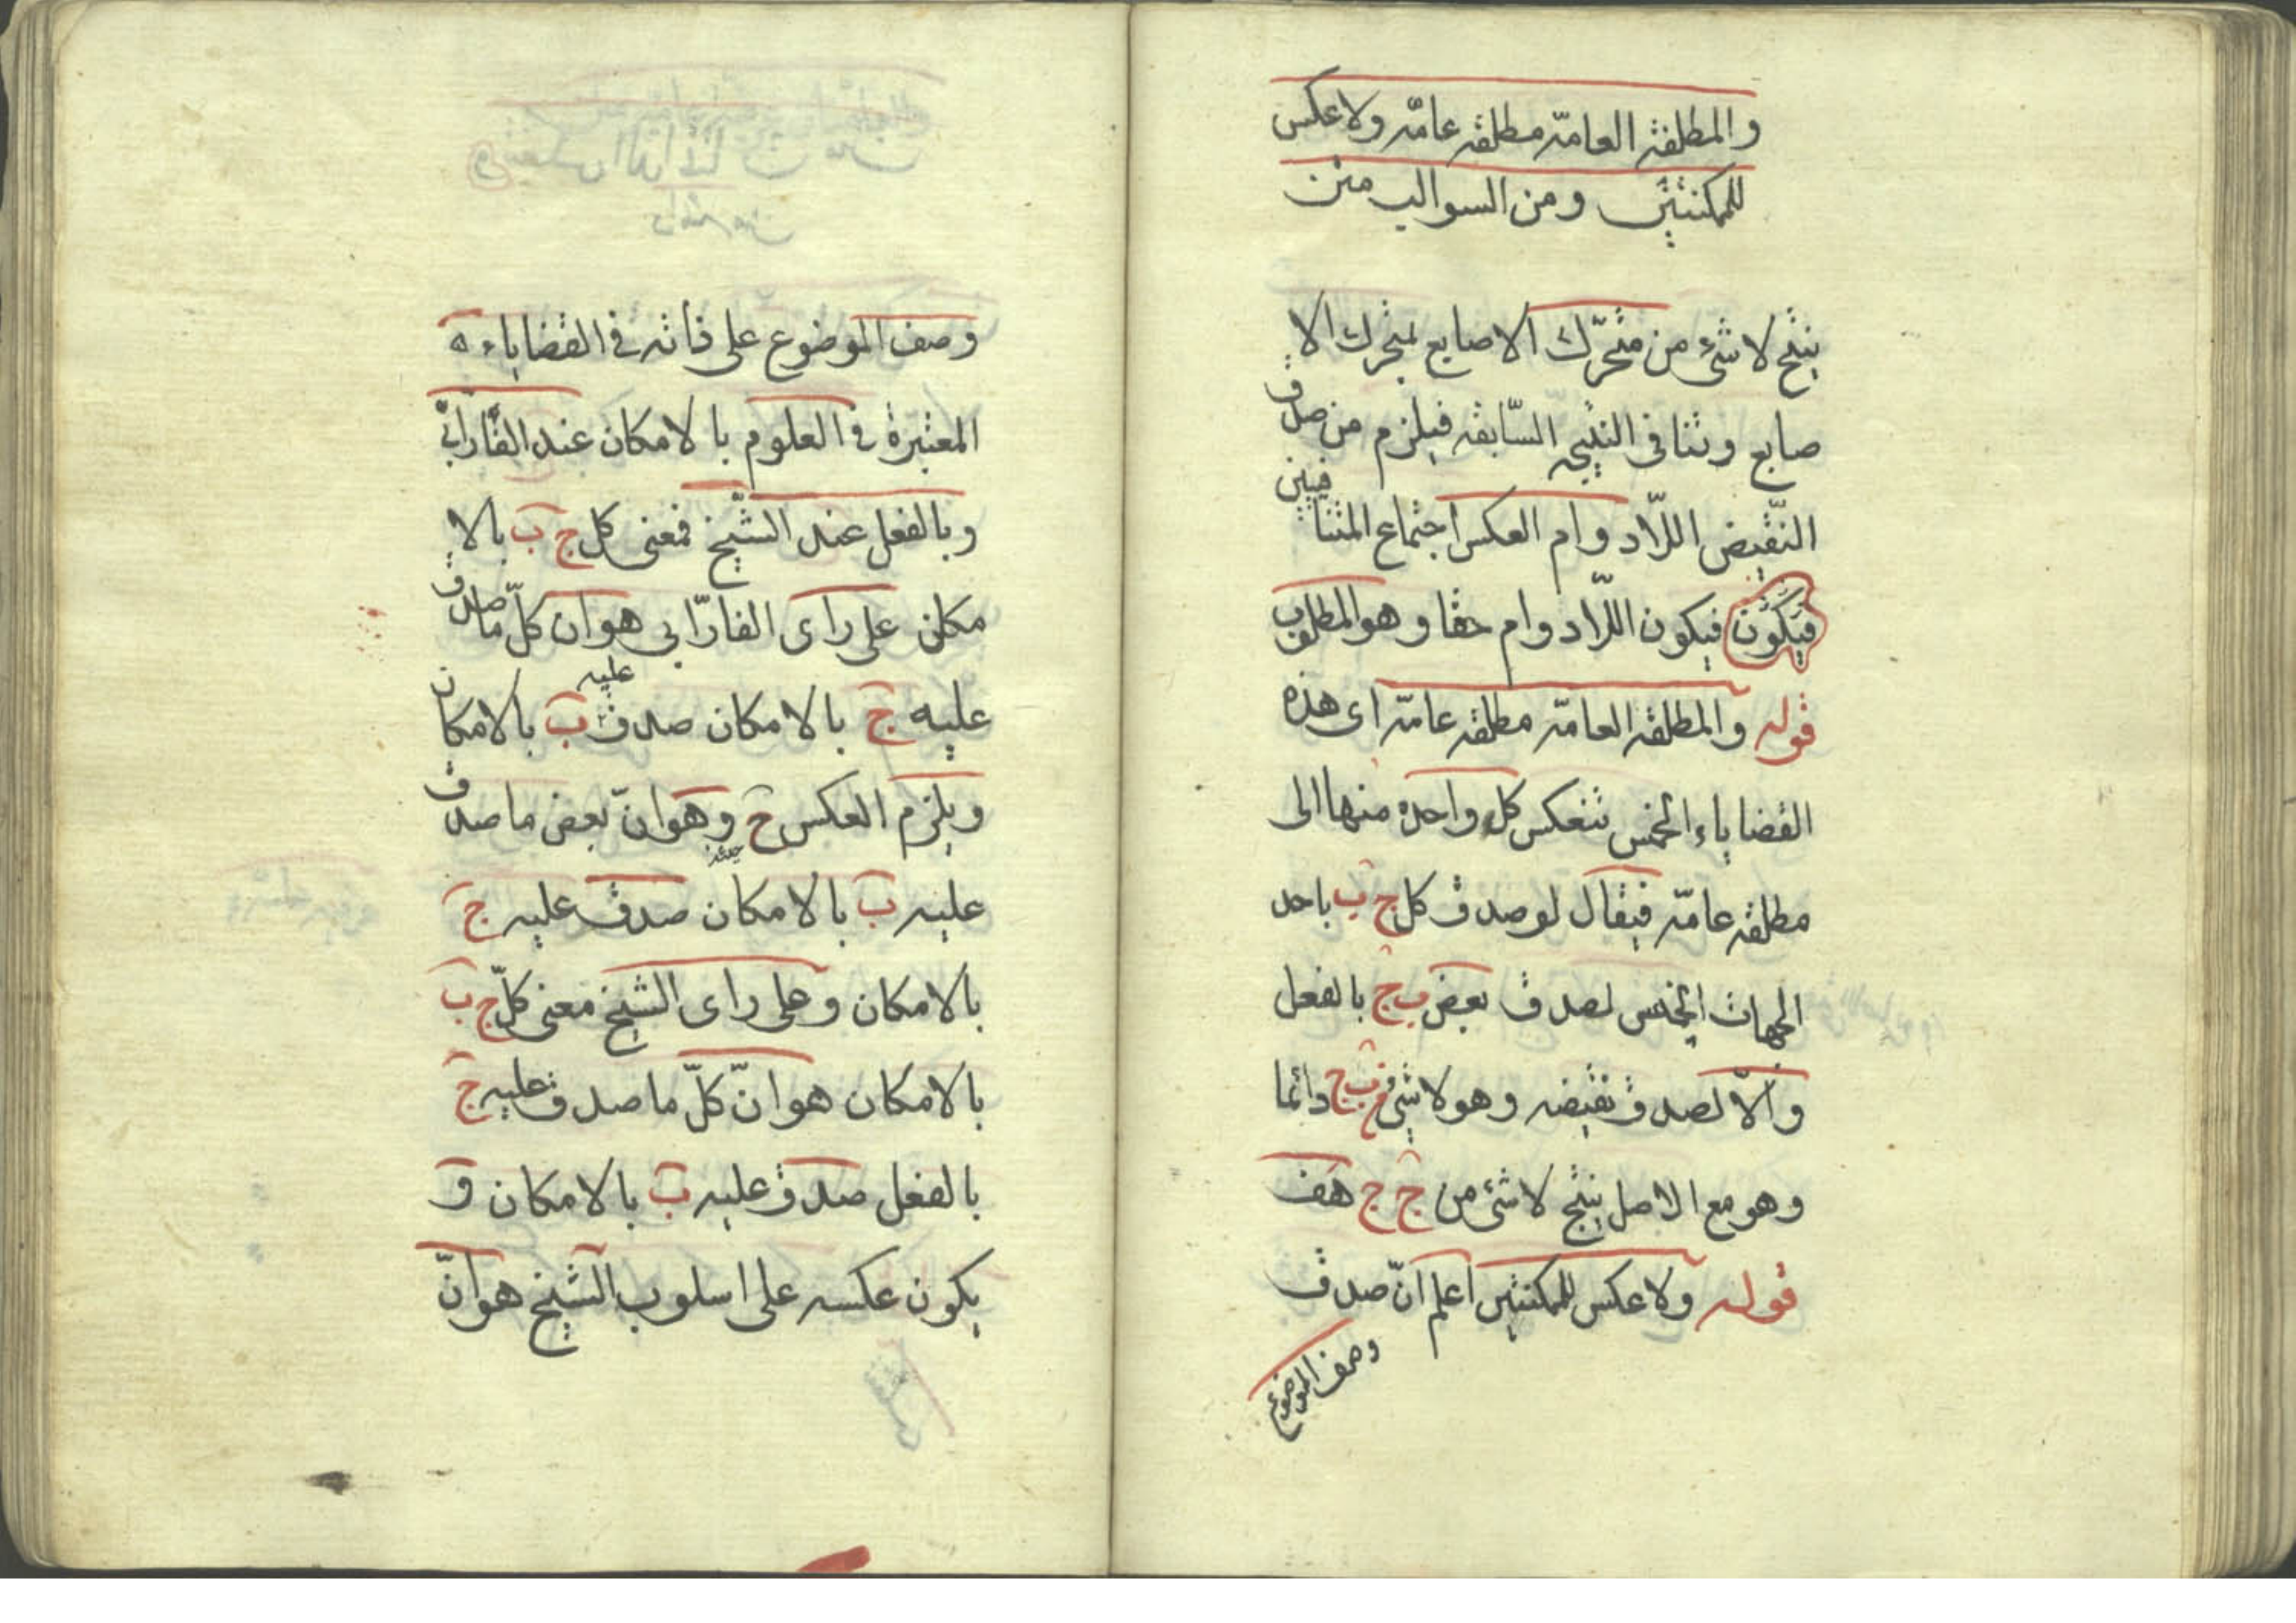 والمطلقة العامّة مطلقة عامّة ولا عكس
للممكنتين ومن السوالب متن
ينتج لا شئ من متحرّك الاصابع بمتحرك الا
صابع وتنافى النتيجه السّابقة فيلزم من صدق
النّقيض اللّادوام العكس اجتماع المتنا فيين
فيكون فيكون اللّادوام حقا وهو المطلوب
قوله والمطلقة العامّة مطلقة عامّة اى هذه
القضاياء الخمس تنعكس كل واحدة منها الى
مطلقة عامّة فيقال لو صدق كل ج ب باحد
الجهات الخمس لصدق بعض ب ج بالفعل
والّا لصدق نقيضه وهو لا شئ من ب ج دائما
وهو مع الاصل ينتج لا شئ من ج ج هف
قوله ولا عكس للممكنتين اعلم انّ صدق
وصف الموضوع
وصف الموضوع على ذاته فى القضاياء ه
المعتبرة فى العلوم بالامكان عند الفارابىّ
وبالفعل عند الشّيخ فمعنى كل ج ب بالا
مكان على راى الفارّابى هو ان كلّ ما صدق
عليه ج بالامكان صدق عليه ب بالامكان
ويلزم العكس ح وهو انّ بعض ما صدق
حينئذ
عليه ب بالامكان صدق عليه ج
بالامكان وعلى راى الشيخ معنى كلّ ج ب
بالامكان هو انّ كلّ ما صدق عليه ج
بالفعل صدق عليه ب بالامكان و
يكون عكسه على اسلوب الشّيخ هو انّ